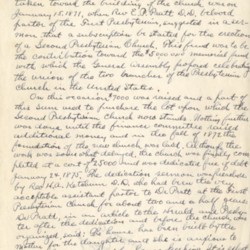 taken toward the building of the church was on
January 15, 1871, when Rev. C. D. Pratt, D.D., beloved
pastor of the First Presbyterian, suggested in a ser-
mon that a subscription be started for the erection
of a Second Presbyterian Church. This fund was to be
the contribution toward the
with which the General Assembly proposed celebrating
the union of the two branches of the Presbyterian
Church in the United States.
On this occasion 7000 was raised and a part of
this sum used to purchase the lot upon which the
Second Presbyterian Church now stands. Nothing further
was done until the finance committee raised
additional money and in the fall of 1872 the
foundation of the new church was laid. Although the
work was somewhat delayed, the church was finally com-
pleted at a cost of 25000 and was dedicated free of debt
January 24, 1875. The dedication sermon was preached
by Rev. H. H. D.D. who had been the
acceptable assistant pastor to Dr. Pratt at the First
Presbyterian Church for about two and a half years.
Dr. Pratt, in an article to the
after the dedication and before the church was
organized said: "The house has been built by the
mother for the daughter and she is anxious to